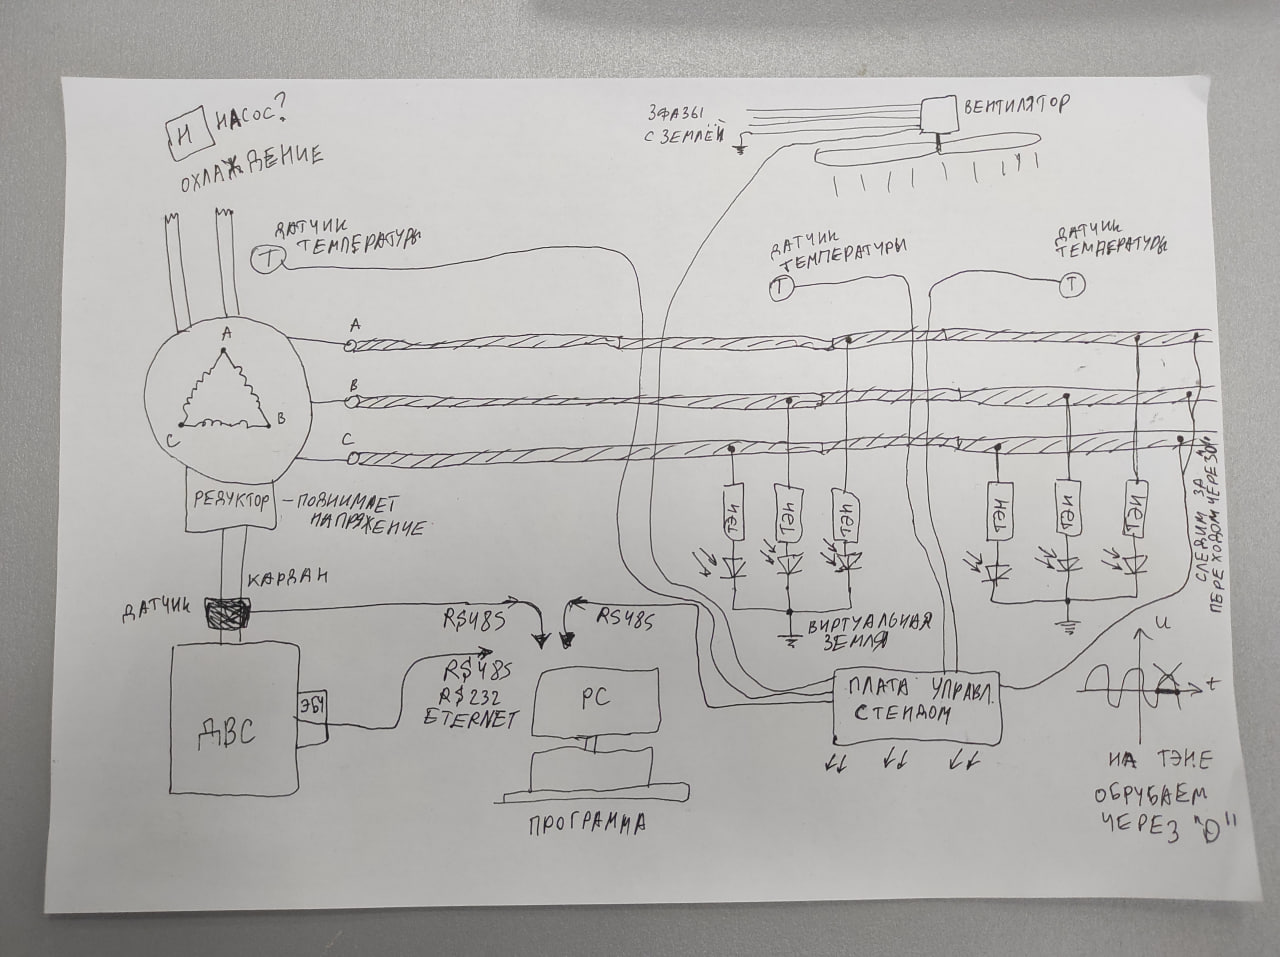 Н
НАСОС?
ОХЛАЖДЕНИЕ
3 ФАЗЫ
С ЗЕМЛЁЙ
ВЕНТИЛЯТОР
ДАТЧИК
ТЕМПЕРАТУРЫ
Т
ДАТЧИК
ТЕМПЕРАТУРЫ
Т
ДАТЧИК
ТЕМПЕРАТУРЫ
Т
А
В
С
А
В
С
РЕДУКТОР
- ПОДНИМАЕТ
НАПРЯЖЕНИЕ
ТЭН
ТЭН
ТЭН
ТЭН
ТЭН
ТЭН
СЛЕДИМ ЗА
ПЕРЕХОДОМ ЧЕРЕЗ 0
КАРДАН
ДАТЧИК
RS485
RS485
ВИРТУАЛЬНАЯ
ЗЕМЛЯ
RS485
RS232
ETERNET
ДВС
ЭБУ
PC
ПРОГРАММА
ПЛАТА УПРАВЛ.
СТЕНДОМ
U
t
НА ТЭНЕ
ОБРУБАЕМ
ЧЕРЕЗ "0"